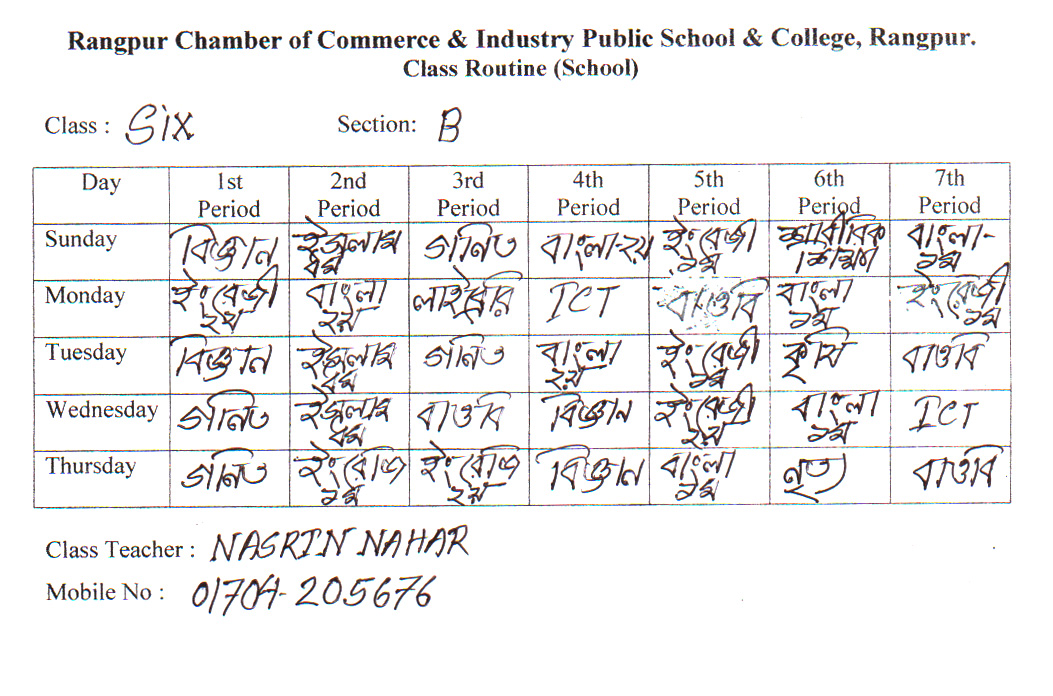 Rangpur Chamber of Commerce & Industry Public School & College, Rangpur.
Class Routine (School)
Class : Six Section: B
Day 1st Period 2nd Period 3rd Period 4th Period 5th Period 6th Period 7th Period
Sunday বিজ্ঞান ইসলাম ধর্ম গনিত বাংলা-২য় ইংরেজী ১ম শারীরিক শিক্ষা বাংলা-১ম
Monday ইংরেজী ২য় বাংলা ২য় লাইব্রেরি ICT বাওবি বাংলা ১ম ইংরেজী ১ম
Tuesday বিজ্ঞান ইসলাম ধর্ম গনিত বাংলা ২য় ইংরেজী ১ম কৃষি বাওবি
Wednesday গনিত ইসলাম ধর্ম বাওবি বিজ্ঞান ইংরেজী ২য় বাংলা ১ম ICT
Thursday গনিত ইংরেজি ১ম ইংরেজি ২য় বিজ্ঞান বাংলা ১ম নৃত্য বাওবি
Class Teacher : NASRIN NAHAR
Mobile No : 01704-205676